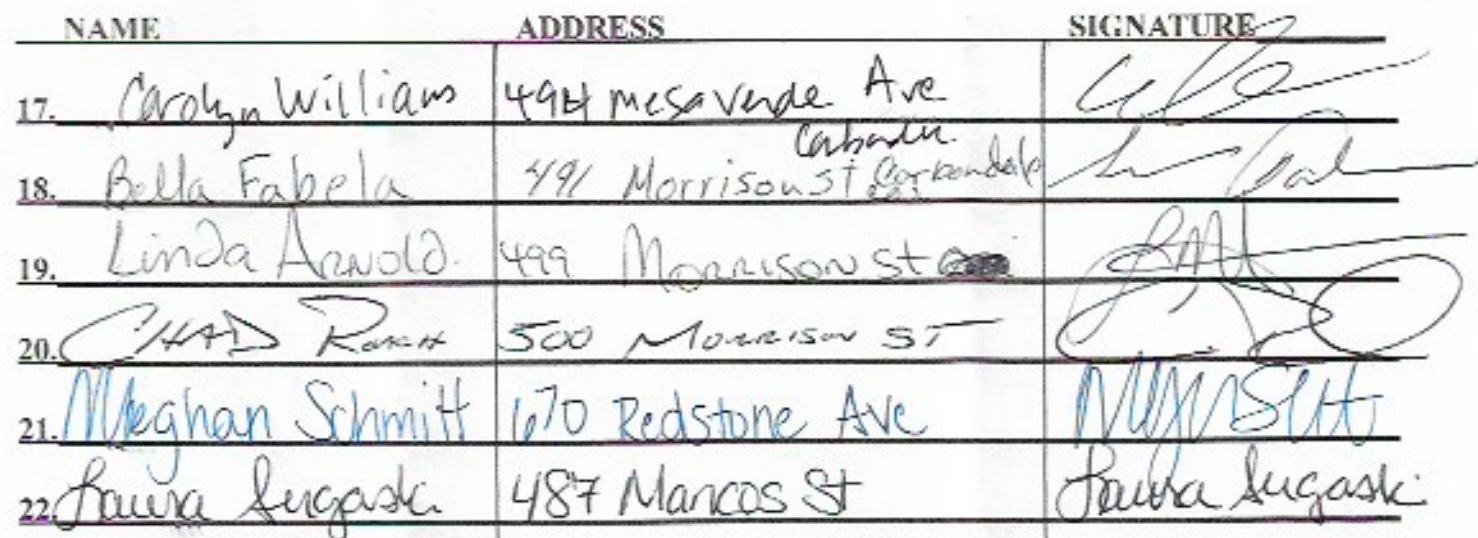 NAME ADDRESS SIGNATURE
17. Carolyn Williams 494 mesa verde Ave
Carbondale
18. Bella Fabela 491 Morrison st Carbondale
19. Linda Arnold. 499 Morrison st
20. CHAD 500 MORRISON ST
21. Meghan Schmitt 670 Redstone Ave
22. Laura Sugaski 487 Mancos St Laura Sugaski